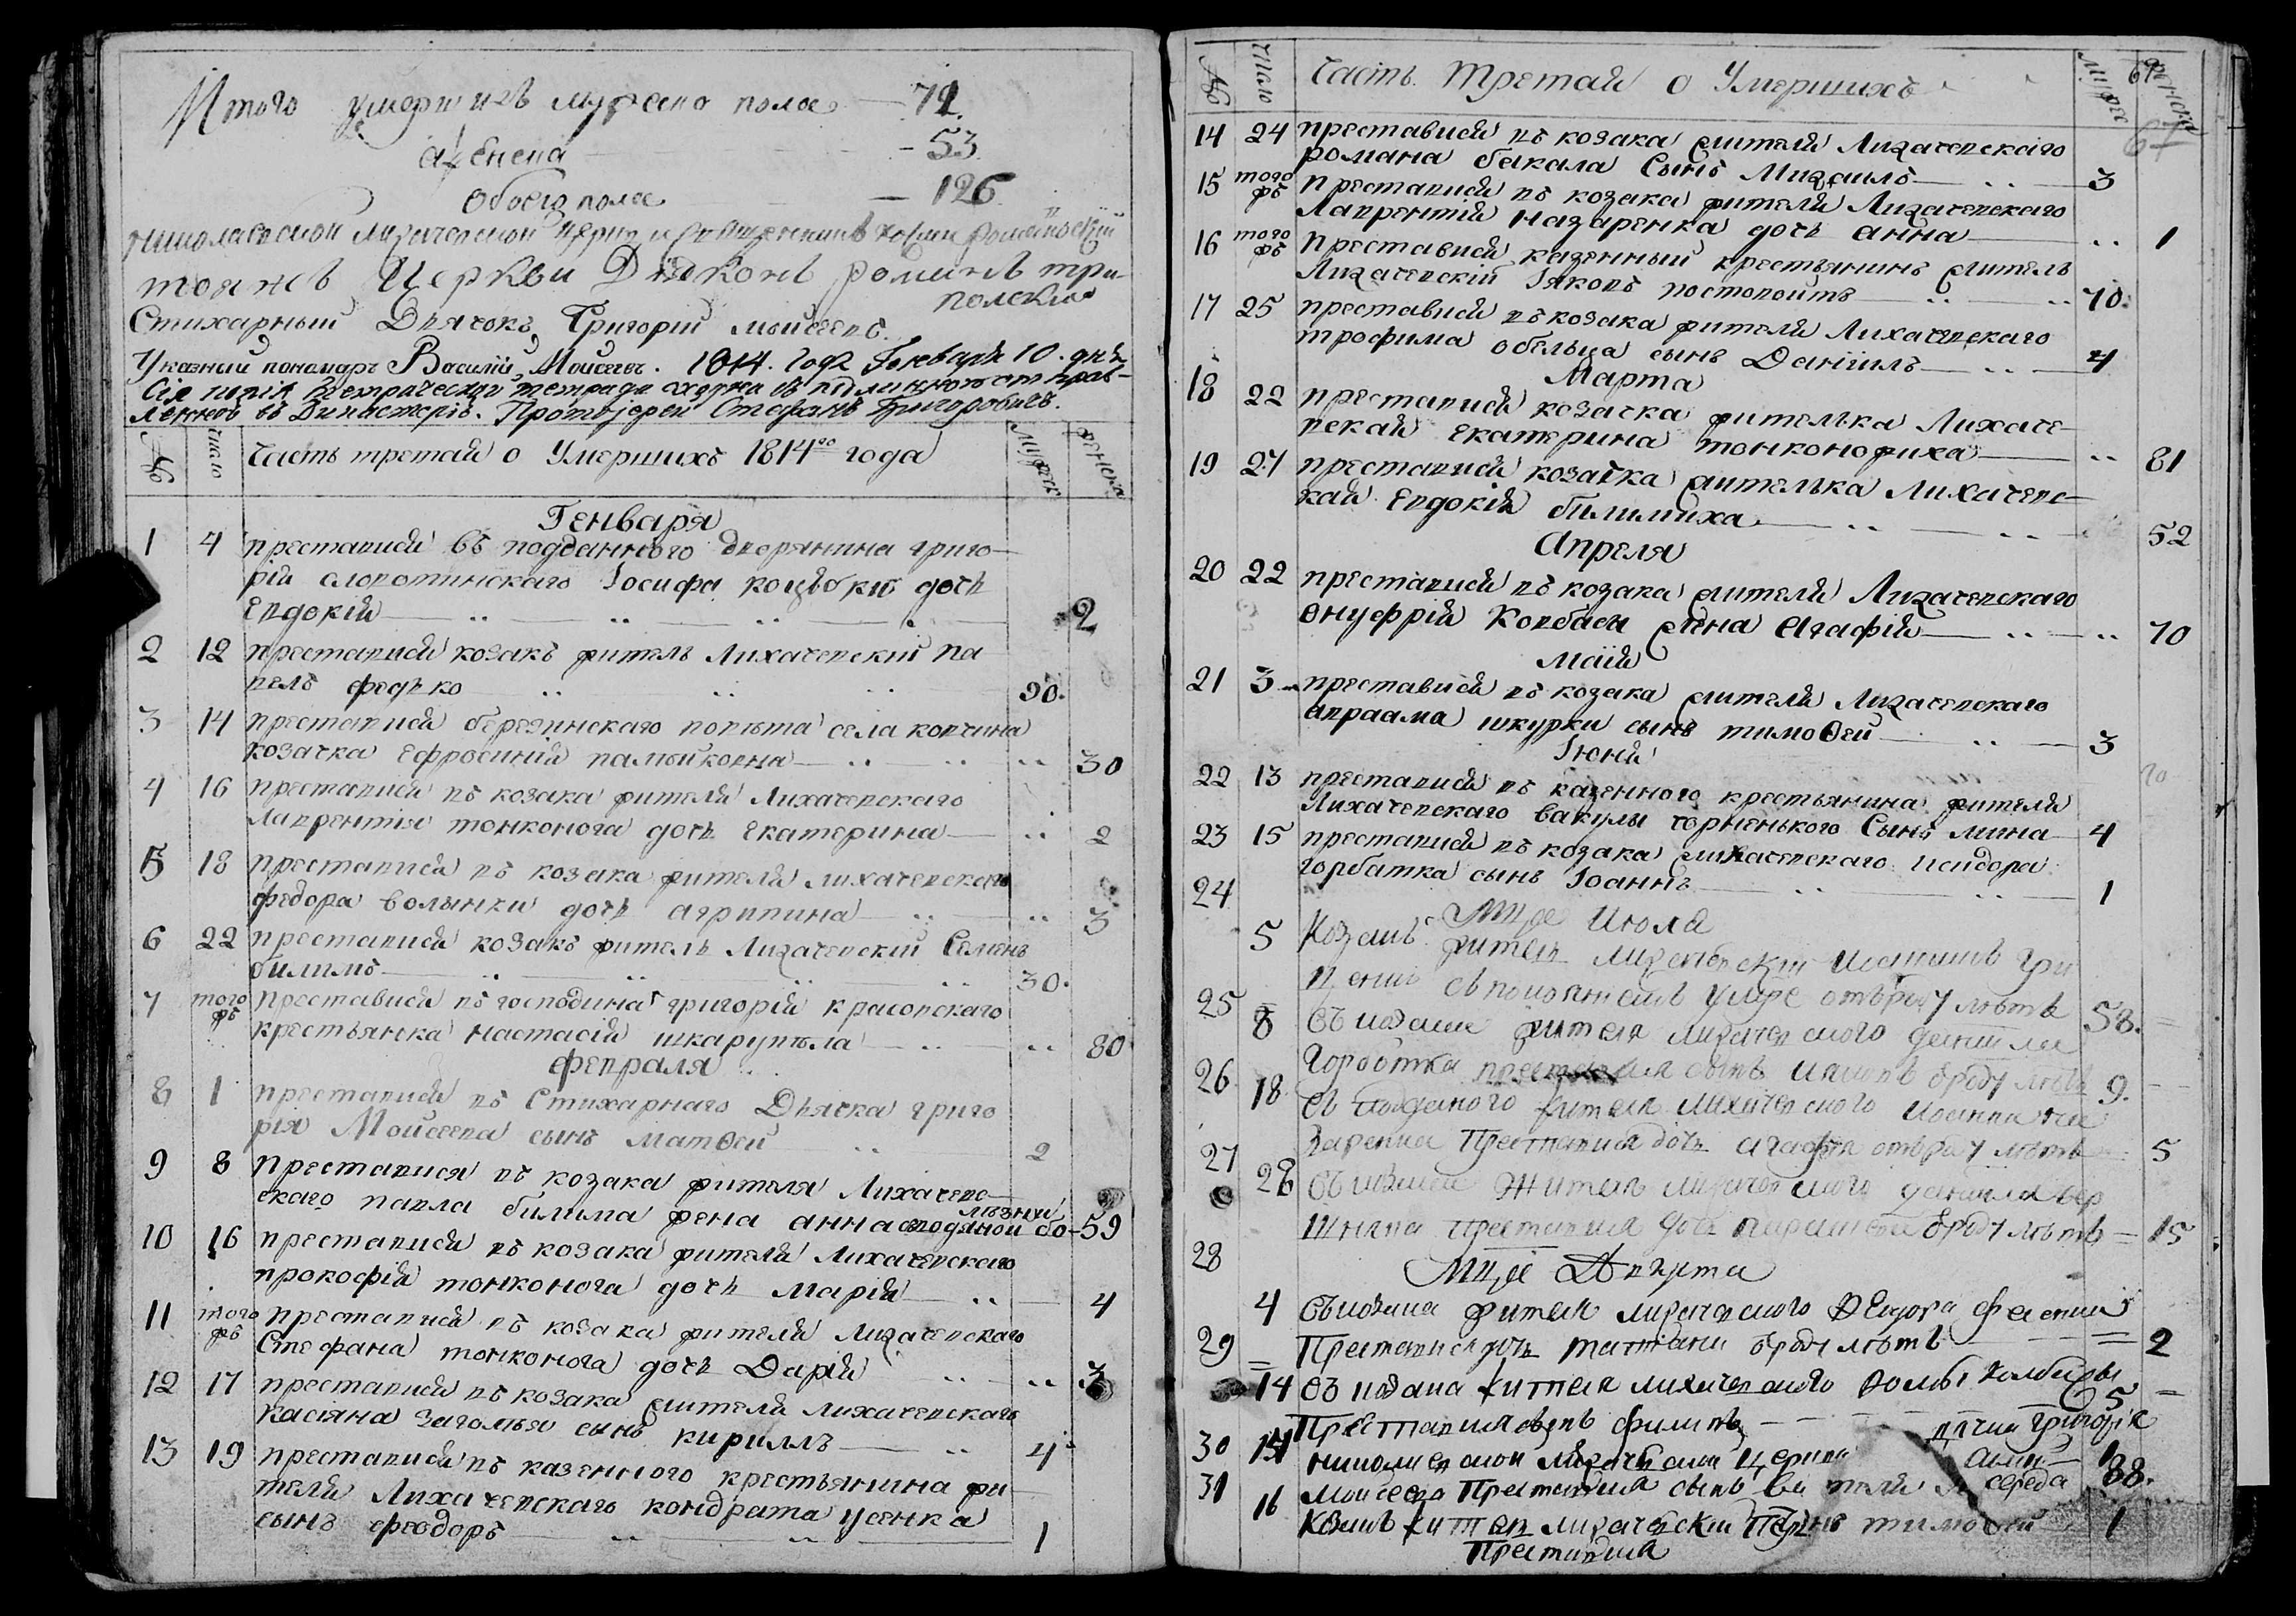 Итого умершихъ мужеска пола — 72.
а женска — 53
обоего пола — 126
николаевской лихачевской церкви священникъ
тояжъ Церкви Діяконъ романъ три-
полский
Стихарный Дьячокъ Григорій мойсеевъ.
Указний пономарь Василій Мойсеевъ. 1814. года Генваря 10. дня
Сія копія метрической тетради сходна съ подлинною отправ-
ленною въ Дикастерію. Протоіерей Стефанъ Григоровичъ.
№ число Часть третая о Умершихъ 1814го года мужск женска
Генваря
1 4 преставися въ подданного дворянина григо-
рія слопотинскаго Іосифа коцюбки дочь
Евдокія 2
2 12 преставися козакъ житель Лихачевский па
велъ федько 90.
3 14 преставися березинскаго повѣта села
козачка Ефросинія 30
4 16 преставися въ козака жителя Лихачевскаго
Лаврентія тонконога дочь Екатерина 2
5 18 преставися въ козака жителя лихачевскаго
федора волынки дочь агрипина 3
6 22 преставися козакъ житель Лихачевский Семенъ
билимъ 30.
7 того жъ преставися въ господина григорія красовскаго
крестьянка настасія шкарупѣла 80
февраля
8 1 преставися въ Стихарнаго Дьячка григо
рія Мойсеева сынъ матѳей 2
9 8 преставися въ козака жителя Лихачевс-
скаго павла билима жена анна водяной бо-
лѣзни 59
10 16 преставися въ козака жителя Лихачевскаго
прокофія тонконога дочь Марія 4
11 того жъ преставися въ козака жителя Лихачевскаго
Стефана тонконога дочь Дарія 3
12 17 преставися въ козака жителя лихачевскаго
касіяна сынъ кириллъ 4
13 19 преставися въ казенного крестьянина жи-
теля Лихачевскаго кондрата усенка
сынъ феодоръ 1
№ число Часть Третая о Умершихъ мужск женска
67
14 24 преставися въ козака жителя Лихачевскаго
романа бакала Сынъ Михаилъ 3
15 того жъ Преставися въ козака жителя Лихачевскаго
Лаврентія назаренка дочь анна 1
16 того жъ Преставися казенный крестьянинъ житель
Лихачевский Іяковъ постовойтъ 70.
17 25 преставися въ козака жителя Лихачевскаго
трофима обельца сынъ Даніилъ 4
Марта
18 22 преставися козачка жителька Лихаче-
вская Екатерина тонконожиха 81
19 27 преставися козачка жителька Лихачевс-
кая Евдокія билимиха 52
Апреля
20 22 преставися въ козака жителя Лихачевскаго
Онуфрія Ковбасы жена Агафія 70
Маія
21 3 преставися въ козака жителя Лихачевскаго
авраама шкурки сынъ тимоѳей 3
Іюня
22 13 преставися въ казенного крестьянина жителя
Лихачевскаго вакулы чорненького Сынъ мина 4
23 15 преставися въ козака лихачевскаго исидора
горбатка сынъ Іоаннъ 1
24 Мца Июля
5 Козакъ житель лихачевский
умре отъроду лѣтъ 58.
25 8 Въ козака жителя лихачевского данила
Горбатка преставился сынъ отроду лѣтъ 9.
26 18 Въ подданого жителя лихачевского иоанна
Заренка Преставися дочь агафия отъроду лѣтъ 5
27 28 Въ козака Жителя лихачевского данила
Преставися дочь отроду лѣтъ 15
28 Мца Августа
4 Въ козака жителя лихачевского
29 Преставися дочь татиана отроду лѣтъ 2
14 Въ козака жителя лихачевского фомы 5
Преставился сынъ филипъ
30 14 николаевской лихачевской Церкви дячка Григорія
31 Моисеева Преставился сынъ 88.
16 Козакъ житель лихачевский середа
1
Преставися